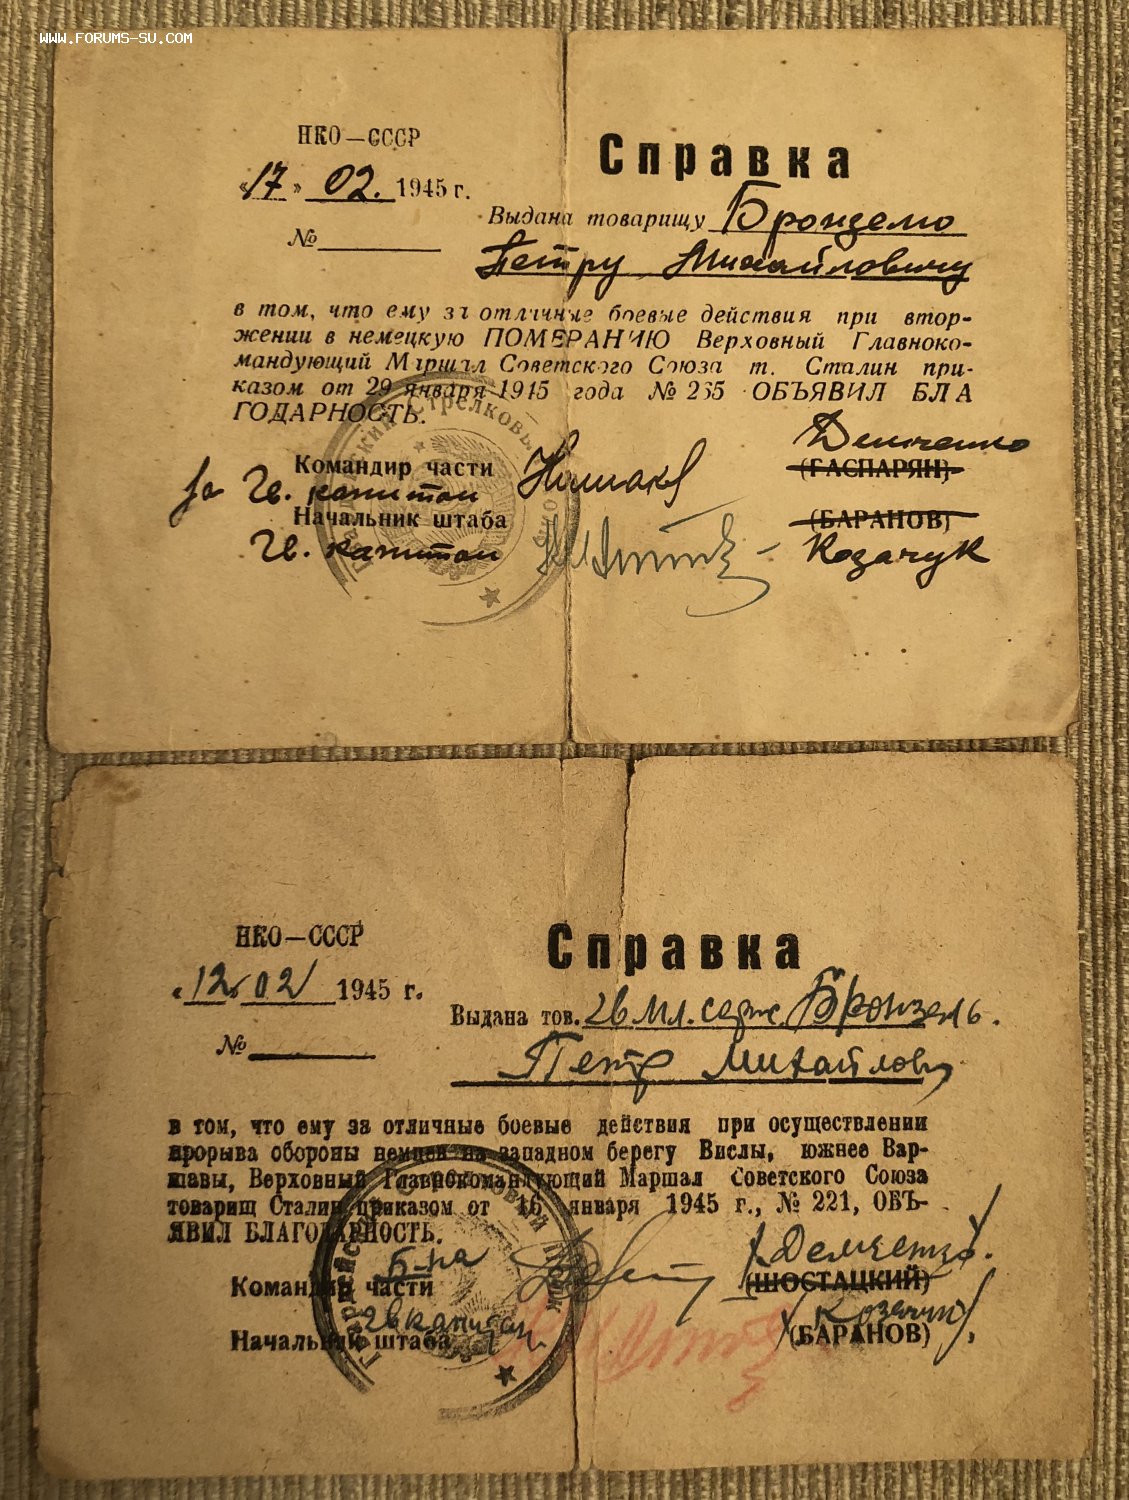 WWW.FORUMS-SU.COM
НКО—СССР
«17» 02. 1945 г.
№
Справка
Выдана товарищу Бронзелю
Петру Михайловичу
в том, что ему за отличные боевые действия при втор-
жении в немецкую ПОМЕРАНИЮ Верховный Главноко-
мандующий Маршал Советского Союза т. Сталин при-
казом от 29 января 1945 года № 265 ОБЪЯВИЛ БЛА
ГОДАРНОСТЬ.
Демченко
Командир части (ГАСПАРЯН)
за Гв. капитан
Начальник штаба (БАРАНОВ)
Гв. капитан Козачук
НКО—СССР
«12» 02 1945 г.
№
Справка
Выдана тов. гв мл. серж. Бронзель.
Петр Михайлович
в том, что ему за отличные боевые действия при осуществлении
прорыва обороны немцев на западном берегу Вислы, южнее Вар-
шавы, Верховный Главнокомандующий Маршал Советского Союза
товарищ Сталин приказом от 16 января 1945 г., № 221, ОБЪ-
ЯВИЛ БЛАГОДАРНОСТЬ.
б-на Демченко.
Командир части (ШОСТАЦКИЙ)
гв капитан Козачук
Начальник штаба (БАРАНОВ)